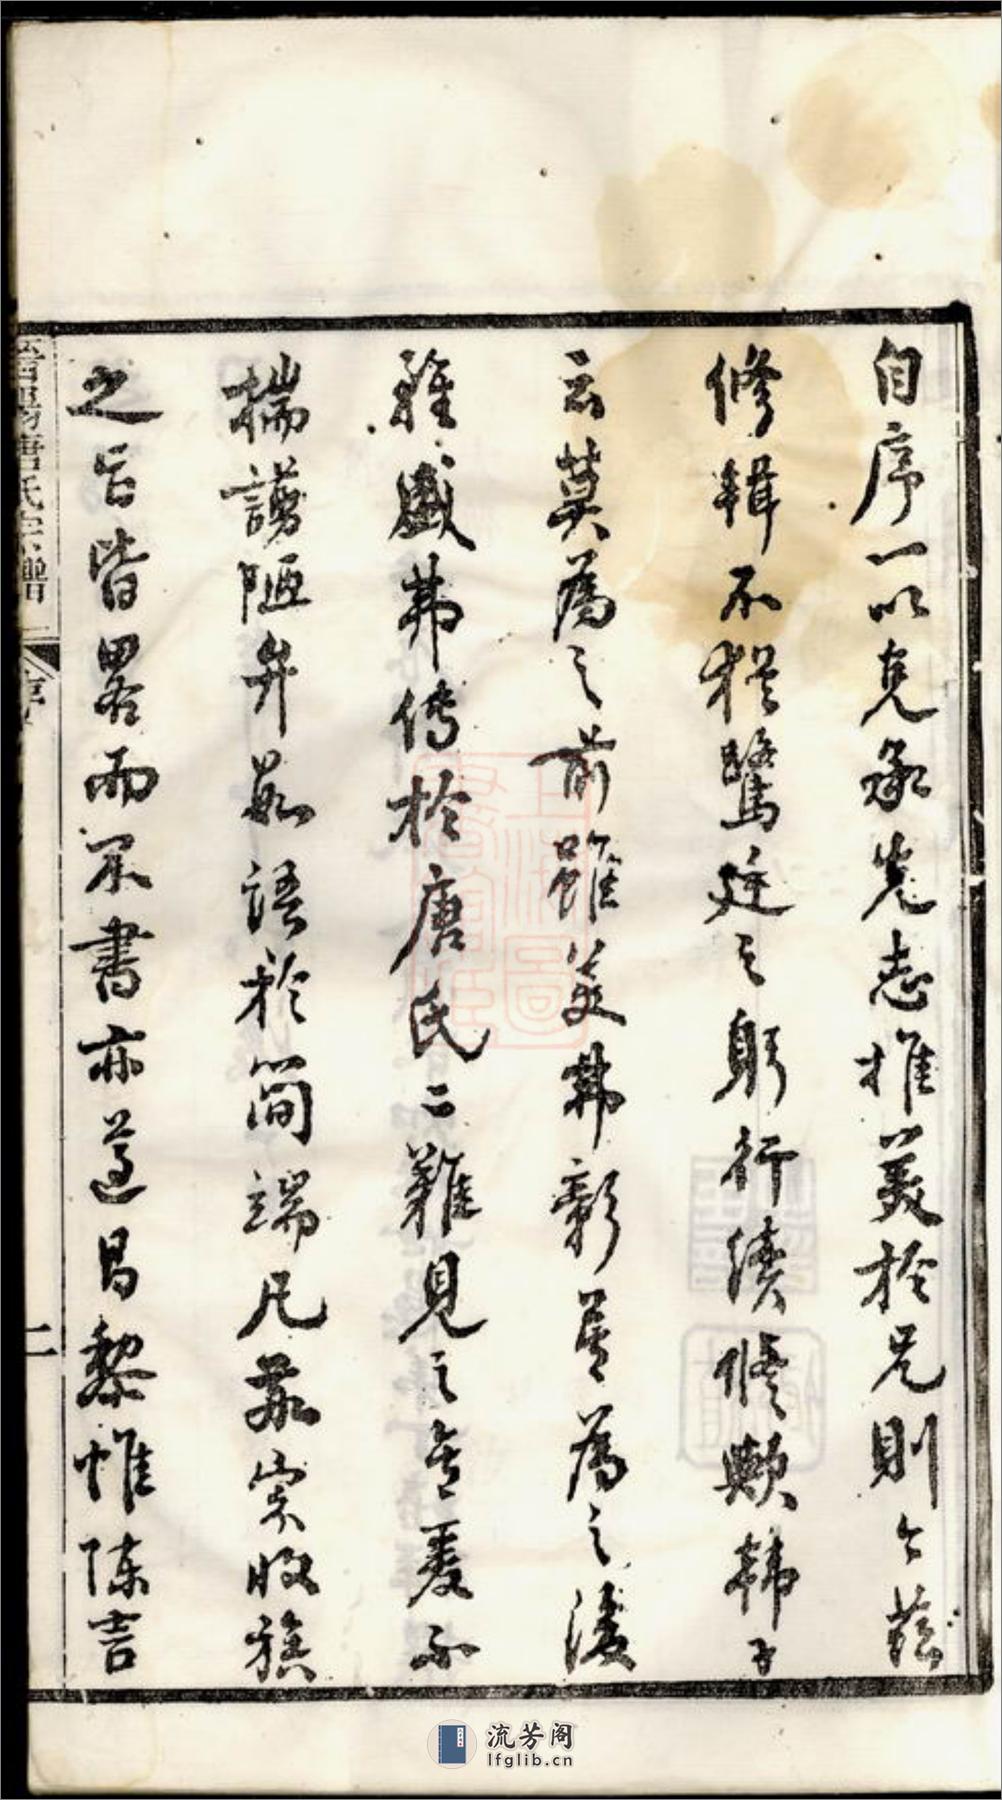 自序一以克承先志推美於兄則今茲
修輯不猶鷺廷之躬行續修歟韓子
云莫爲之前雖美弗彰莫爲之後
雖盛弗傳於唐氏二難見之矣爰不
揣譾陋弁數語於簡端凡敬宗收族
之旨皆畧而不書亦遵昌黎惟陳言
晉陽唐氏宗譜
序
二
流芳阁
lfglib.cn